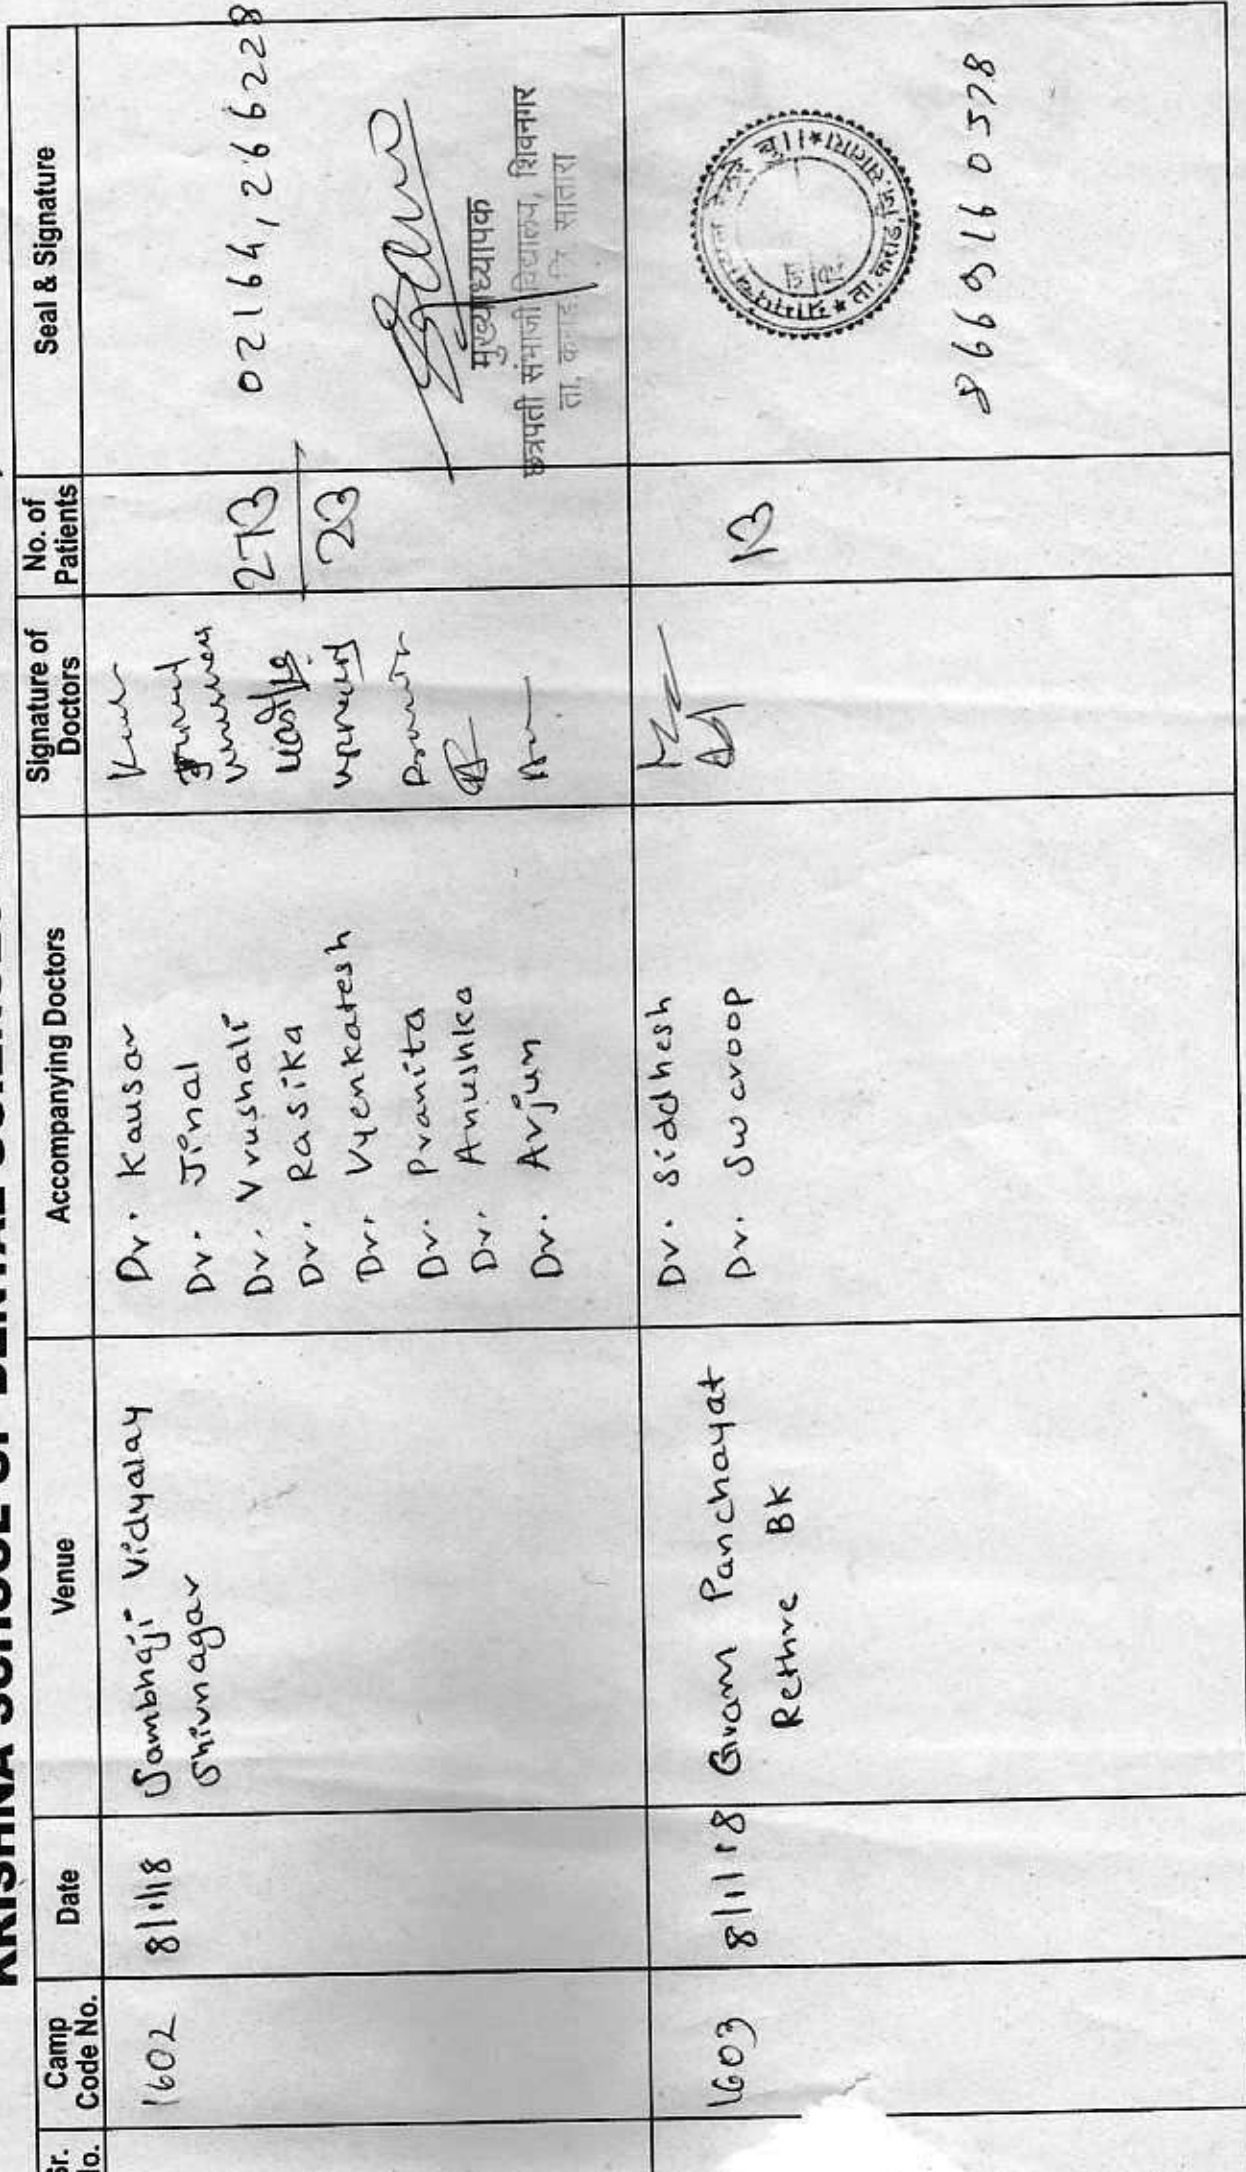 KRISHNA SCHOOL OF DENTAL SCIENCES
Sr. No.
Camp Code No.
Date
Venue
Accompanying Doctors
Signature of Doctors
No. of Patients
Seal & Signature
1602
8/1/18
Sambhaji Vidyalay
Shivnagar
Dr. Kausar
Dr. Jinal
Dr. Vrushali
Dr. Rasika
Dr. Vyenkatesh
Dr. Pranita
Dr. Anushka
Dr. Arjun
273
23
02164, 266228
मुख्याध्यापक
छत्रपती संभाजी विद्यालय, शिवनगर
ता. कराड. जि. सातारा
1603
8/1/18
Gram Panchayat
Rethre BK
Dr. Siddhesh
Dr. Swaroop
13
ता. कराड, जि. सातारा